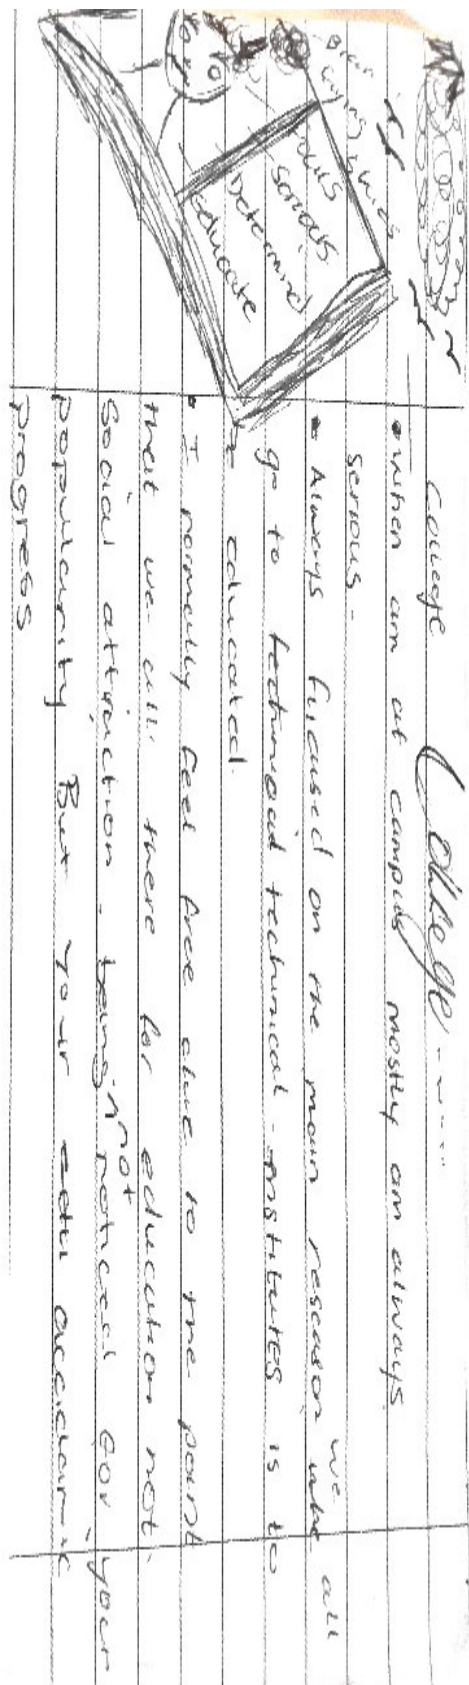 College College - - - -
• When am at campus mostly am always
serious.
• Always fucused on the main reseason we all
go to technical - institutes is to
educated.
• I normally feel free due to the point
that we all there for education not
social attraction. being not noticed for your
popularity But your accidamic
progress
focus
serious
Determind
educate